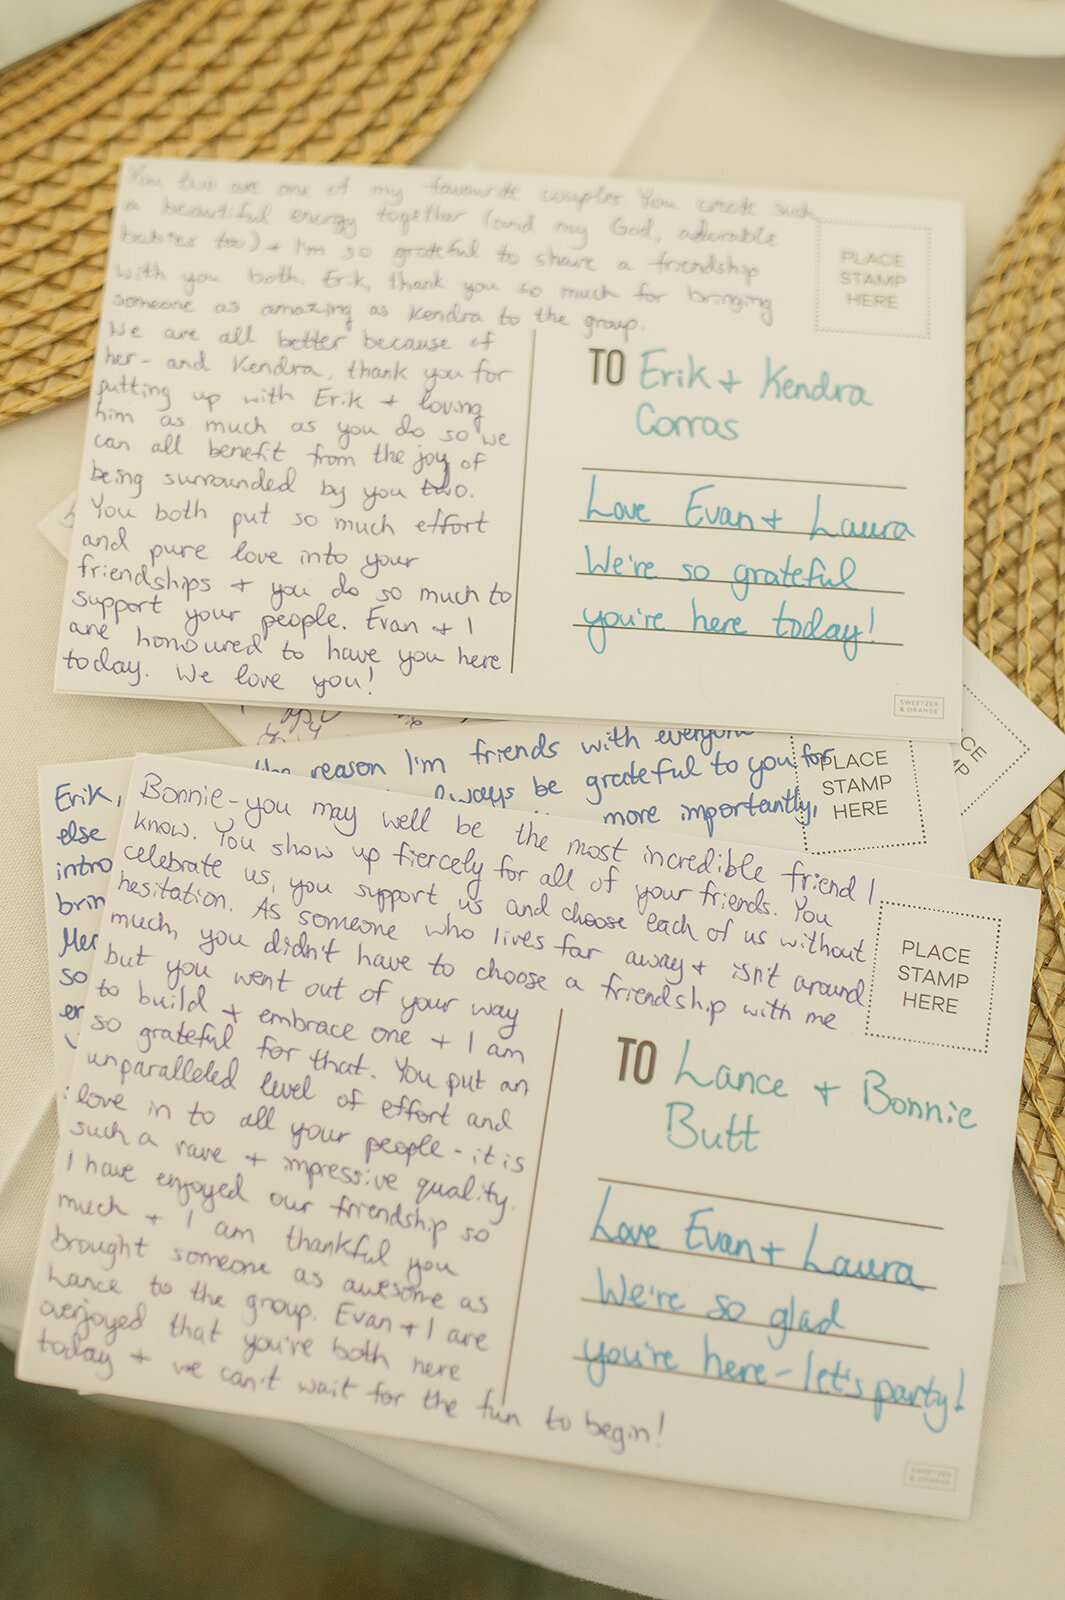 You two are one of my favourite couples. You create such
a beautiful energy together (and my God, adorable
babies too) + I'm so grateful to share a friendship
with you both. Erik, thank you so much for bringing
someone as amazing as Kendra to the group.
We are all better because of
her - and Kendra, thank you for
putting up with Erik + loving
him as much as you do so we
can all benefit from the joy of
being surrounded by you two.
You both put so much effort
and pure love into your
friendships + you do so much to
support your people. Evan + I
are honoured to have you here
today. We love you!
PLACE
STAMP
HERE
TO Erik + Kendra
Corras
Love Evan + Laura
We're so grateful
you're here today!
SWEETZER
& ORANGE
reason I'm friends with everyone
always be grateful to you for
more importantly,
PLACE
STAMP
HERE
Erik,
else
intro
brin
Mer
so
er
Bonnie - you may well be the most incredible friend I
know. You show up fiercely for all of your friends. You
celebrate us, you support us and choose each of us without
hesitation. As someone who lives far away + isn't around
much, you didn't have to choose a friendship with me
but you went out of your way
to build + embrace one + I am
so grateful for that. You put an
unparalleled level of effort and
love in to all your people - it is
such a rare + impressive quality.
I have enjoyed our friendship so
much + I am thankful you
brought someone as awesome as
Lance to the group. Evan + I are
overjoyed that you're both here
today + we can't wait for the fun to begin!
PLACE
STAMP
HERE
TO Lance + Bonnie
Butt
Love Evan + Laura
We're so glad
you're here - let's party!
SWEETZER
& ORANGE